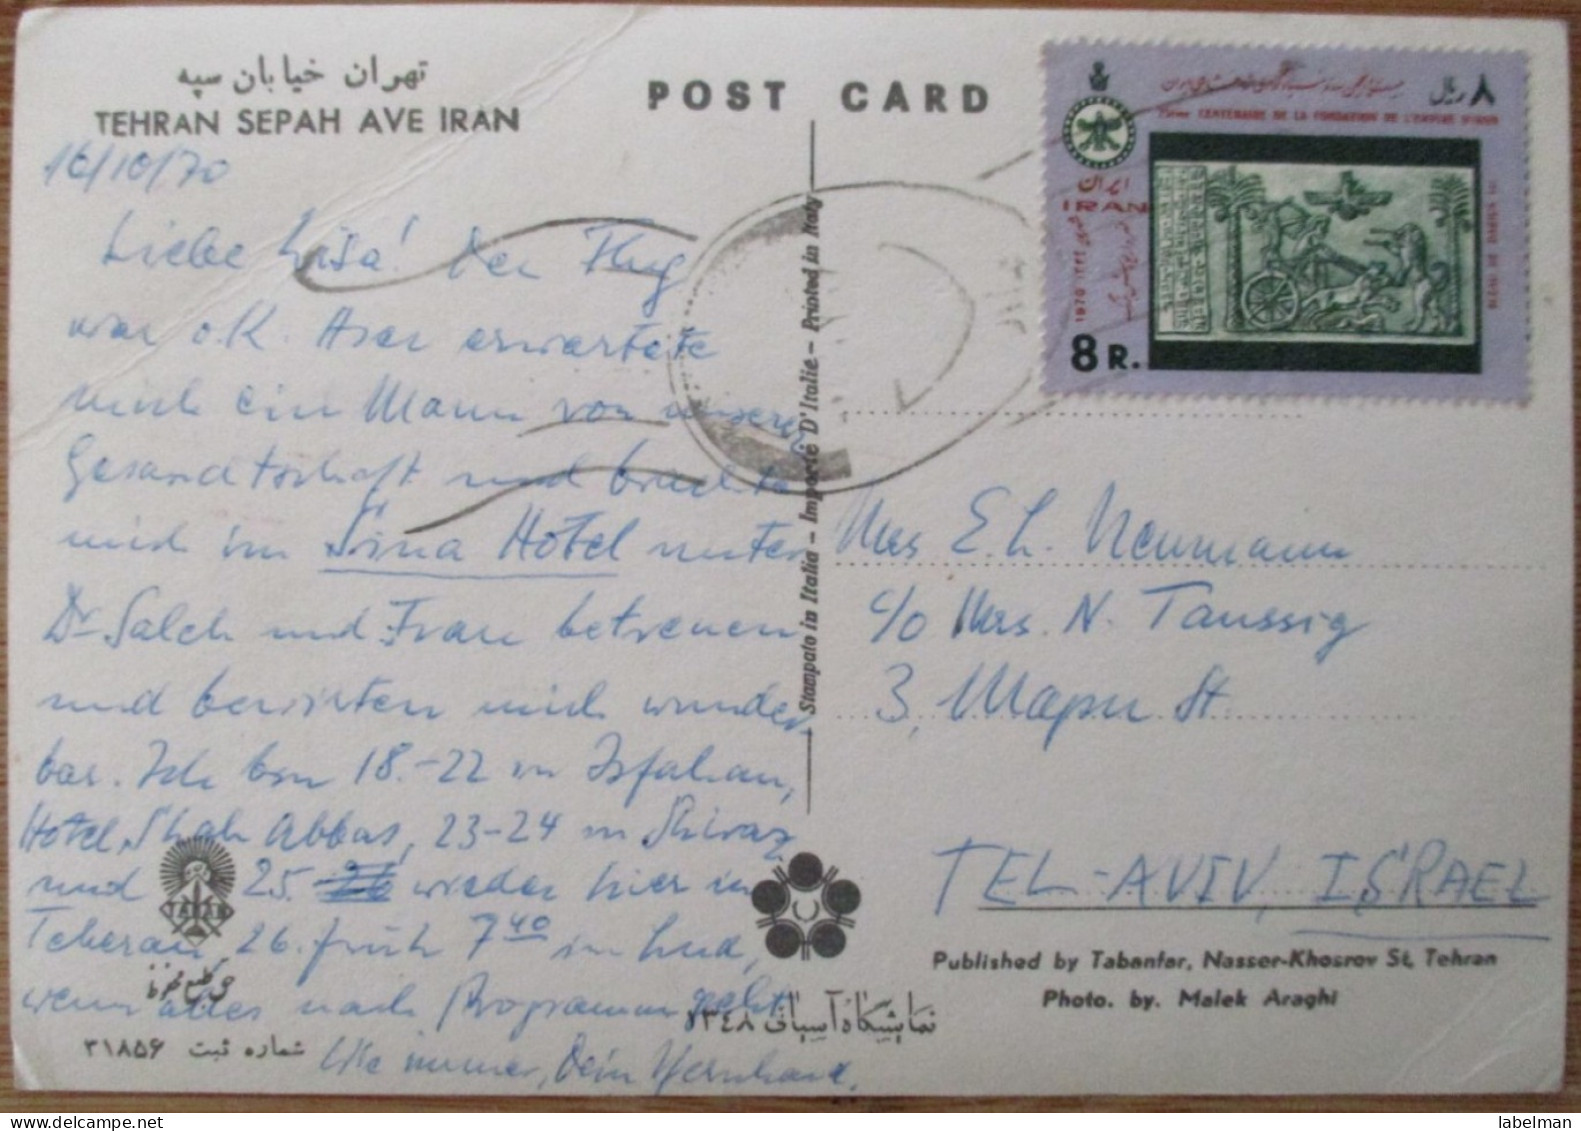 تهران خیابان سپه
TEHRAN SEPAH AVE IRAN
POST CARD
16/10/70
Liebe Lisa! Der Flug
war o.K. Aser erwartete
mich ein Mann von unserer
Gesandtschaft und brachte
mich im Sina Hotel unter
Dr Saleh und Frau betreuen
und bewirten mich wunder
bar. Ich bin 18.-22 in Isfahan,
Hotel Shah Abbas, 23-24 in Shiraz
und 25. wieder hier in
Teheran 26. früh 7 40 in Lud,
wenn alles nach Programm geht
Wie immer, Dein Bernhard.
حق طبع محفوظ
شماره ثبت ۳۱۸۵۶
نمایشگاه آسیائی ۱۳۴۸
Stampato in Italia - Importé D'Italie - Printed in Italy
۸ ریال
25ème CENTENAIRE DE LA FONDATION DE L'EMPIRE D'IRAN
ایران
IRAN
1970
SCEAU DE DARIUS Ier
8 R.
Mrs E. L. Neumann
c/o Mrs. N. Taussig
3, Mapu St
TEL-AVIV, ISRAEL
Published by Tabanfar, Nasser-Khosrov St, Tehran
Photo. by. Malek Araghi